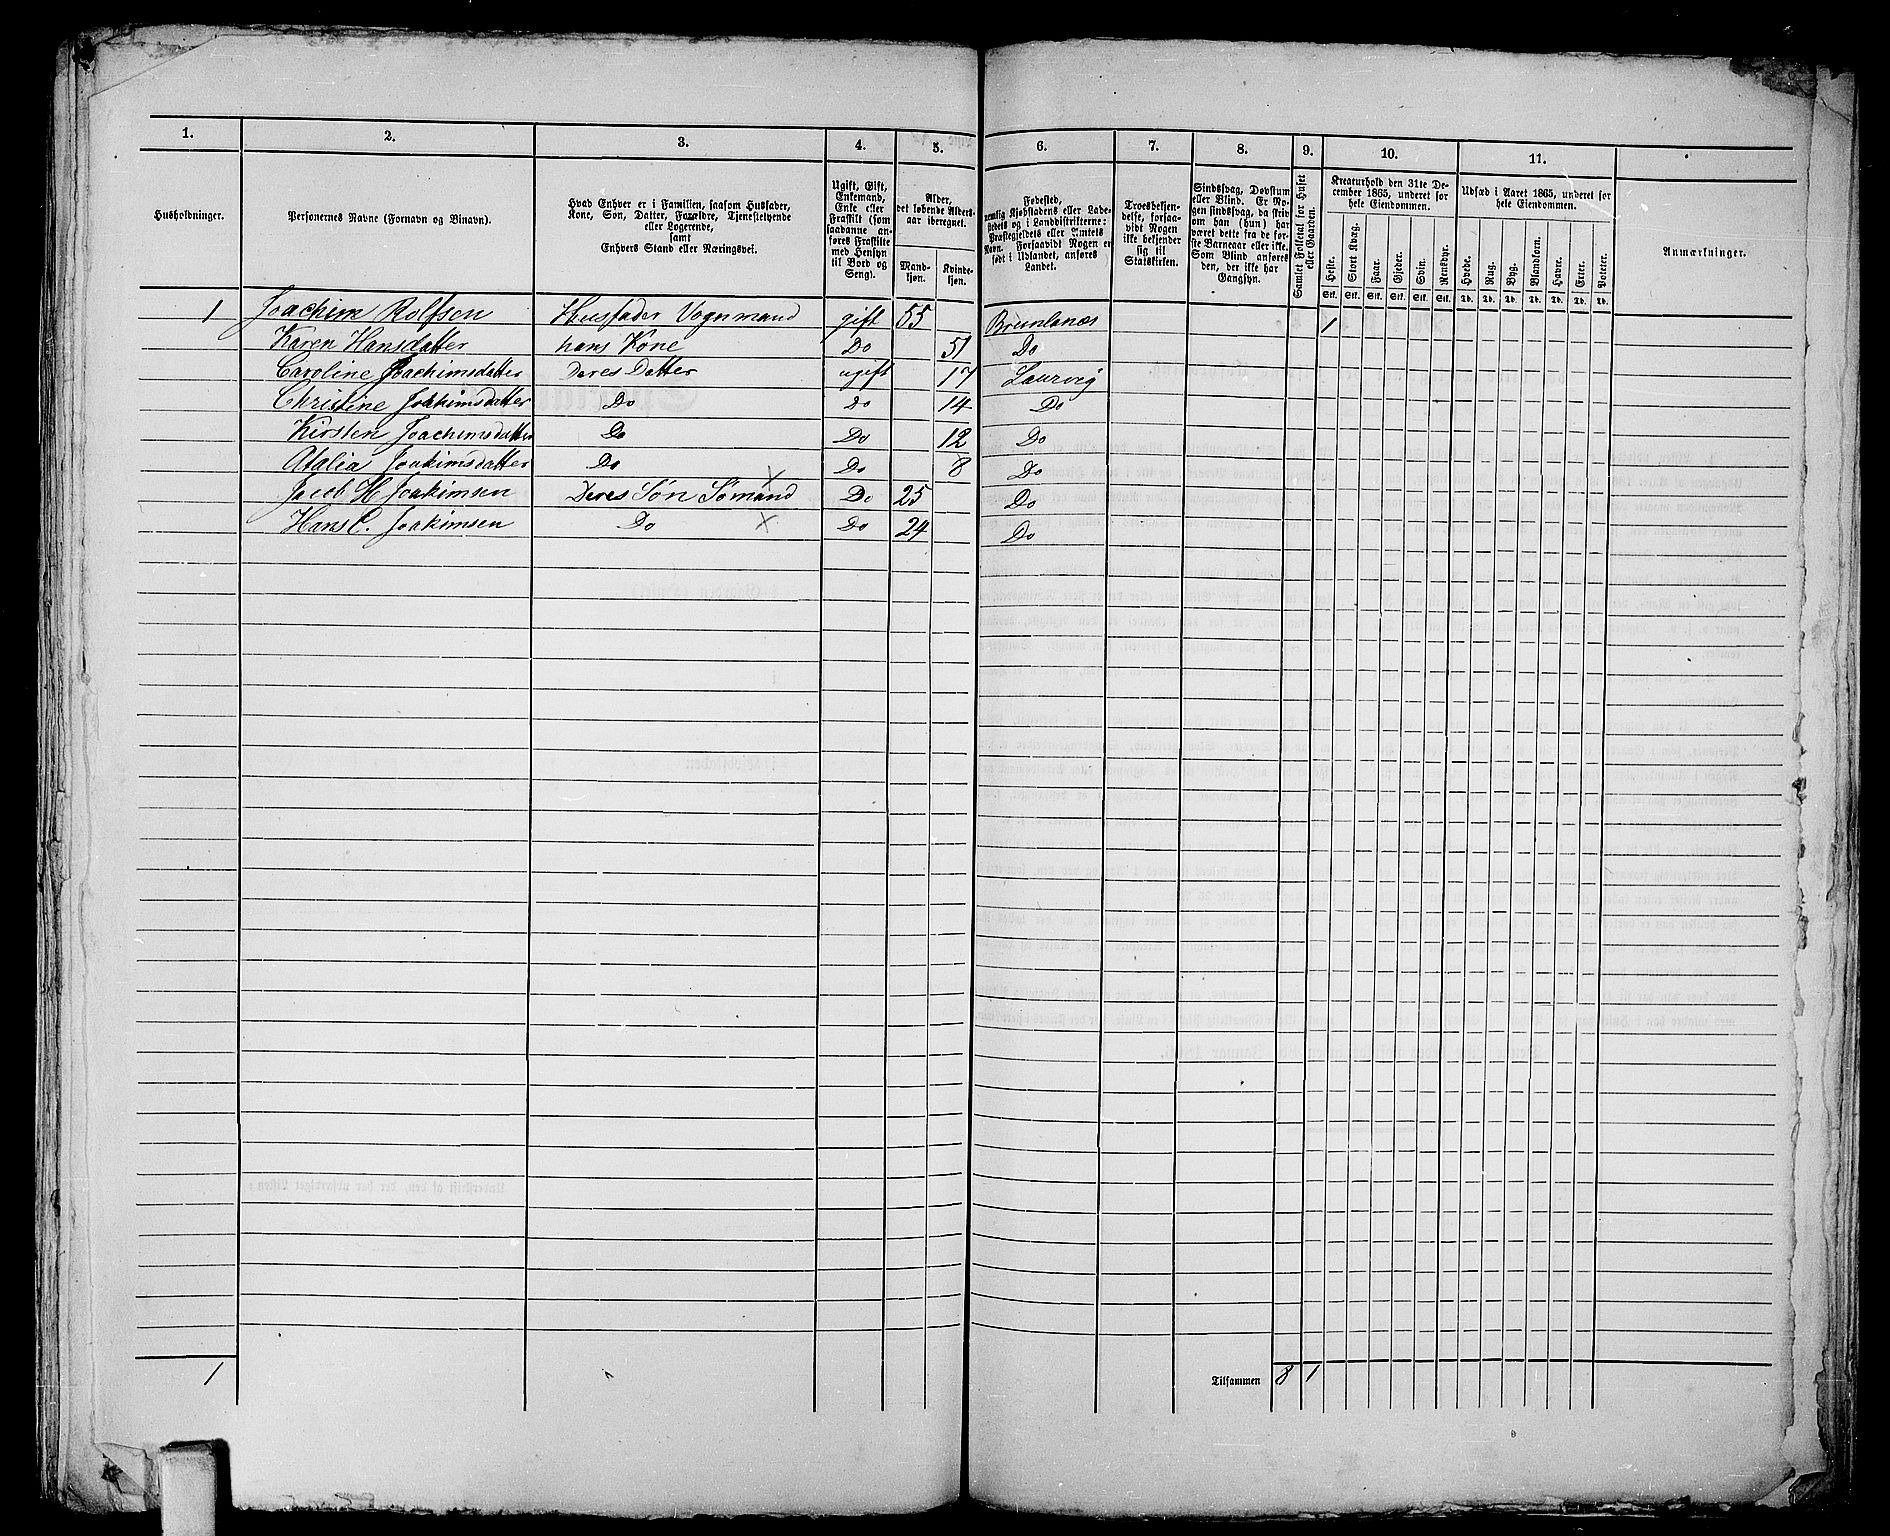 1. 2. 3. 4. 5. 6. 7. 8. 9. 10. 11.
Husholdninger.
Personernes Navne (Fornavn og Binavn).
Hvad Enhver er i Familien, saasom Husfader,
Kone, Søn, Datter, Forældre, Tjenestetyende
eller Logerende,
samt
Enhvers Stand eller Næringsvei.
Ugift, Gift,
Enkemand,
Enke eller
Fraskilt (som
saadanne an-
føres Fraskilte
med Hensyn
til Bord og
Seng).
Alder,
det løbende Alders-
aar iberegnet.
Mand-
kjøn.
Kvinde-
kjøn.
Fødested,
nemlig Kjøbstadens eller Lade-
stedets og i Landdistrikterne:
Præstegjeldets eller Amtets
Navn. Forsaavidt Nogen er
født i Udlandet, anføres
Landet.
Troesbekjen-
delse, forsaa-
vidt Nogen
ikke bekjender
sig til
Statskirken.
Sindssvag, Døvstum
eller Blind. Er No-
gen sindssvag, da skriv
om han (hun) har
været dette fra de før-
ste Barneaar eller ikke.
Som Blind anføres
den, der ikke har
Gangsyn.
Samlet Folketal for Huset
eller Gaarden.
Kreaturhold den 31te De-
cember 1865, underet for
hele Eiendommen.
Heste. Stort Kvæg. Faar. Gjeder. Svin. Rensdyr.
Stk. Stk. Stk. Stk. Stk. Stk.
Udsæd i Aaret 1865, underet for
hele Eiendommen.
Hvede. Rug. Byg. Blandkorn. Havre. Erter. Poteter.
Td. Td. Td. Td. Td. Td. Td.
Anmærkninger.
1 Joachim Rolfsen Husfader Vognmand gift 55 Brunlanæs 1
Karen Hansdatter hans Kone Do 51 Do
Caroline Joachimsdatter Deres Datter ugift 17 Laurvig
Christine Joakimsdatter Do Do 14 Do
Kirsten Joachimsdatter Do Do 12 Do
Atalia Joakimsdatter Do Do 8 Do
Jacob H Joakimsen Deres Søn Sømand × Do 25 Do
Hans C. Joakimsen Do × Do 24 Do
1 Tilsammen 8 1